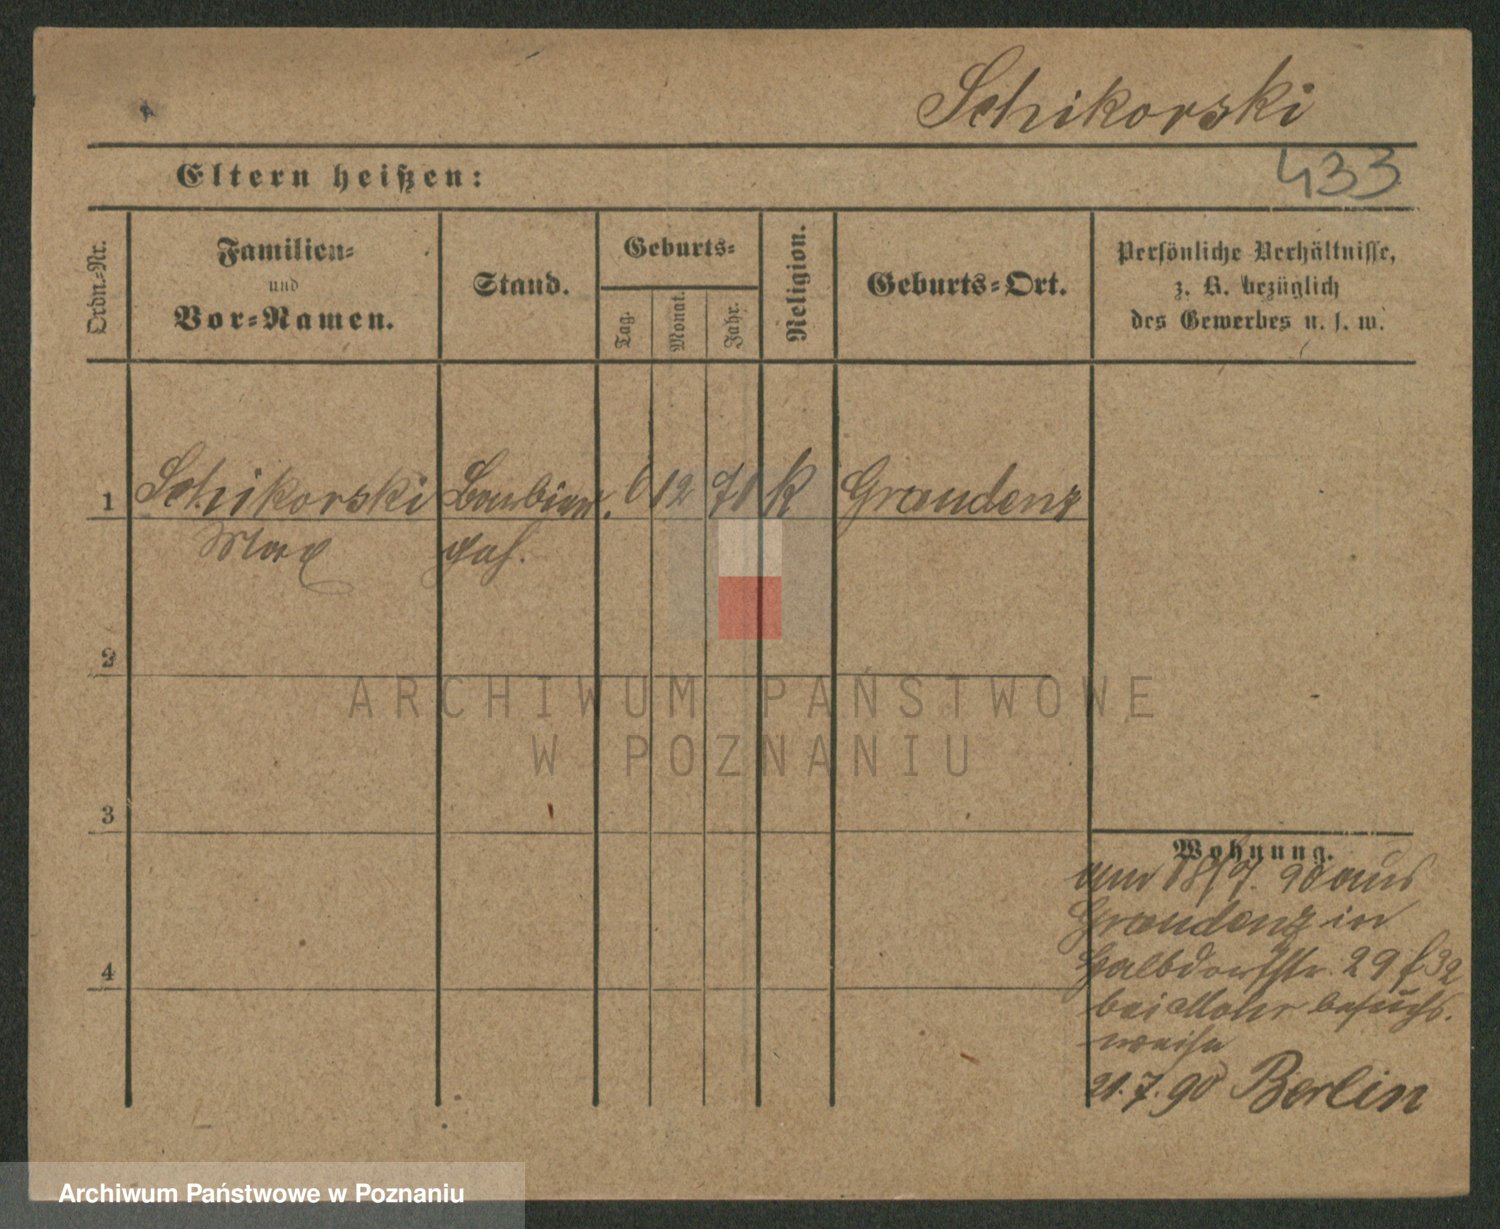 Schikorski
433
Eltern heißen:
Ordn.-Nr.
Familien-
und
Vor-Namen.
Stand.
Geburts-
Tag.
Monat.
Jahr.
Religion.
Geburts-Ort.
Persönliche Verhältnisse,
z. B. bezüglich
des Gewerbes u. s. w.
1 Schikorski Barbier. 6 12 71 K Graudenz
Max geh.
2
ARCHIWUM PAŃSTWOWE
W POZNANIU
3
4
Wohnung.
am 18/7. 90 aus
Graudenz in
Halbdorfstr. 29 f 32
bei Mohr besuchs.
weise
21.7.90 Berlin
Archiwum Państwowe w Poznaniu